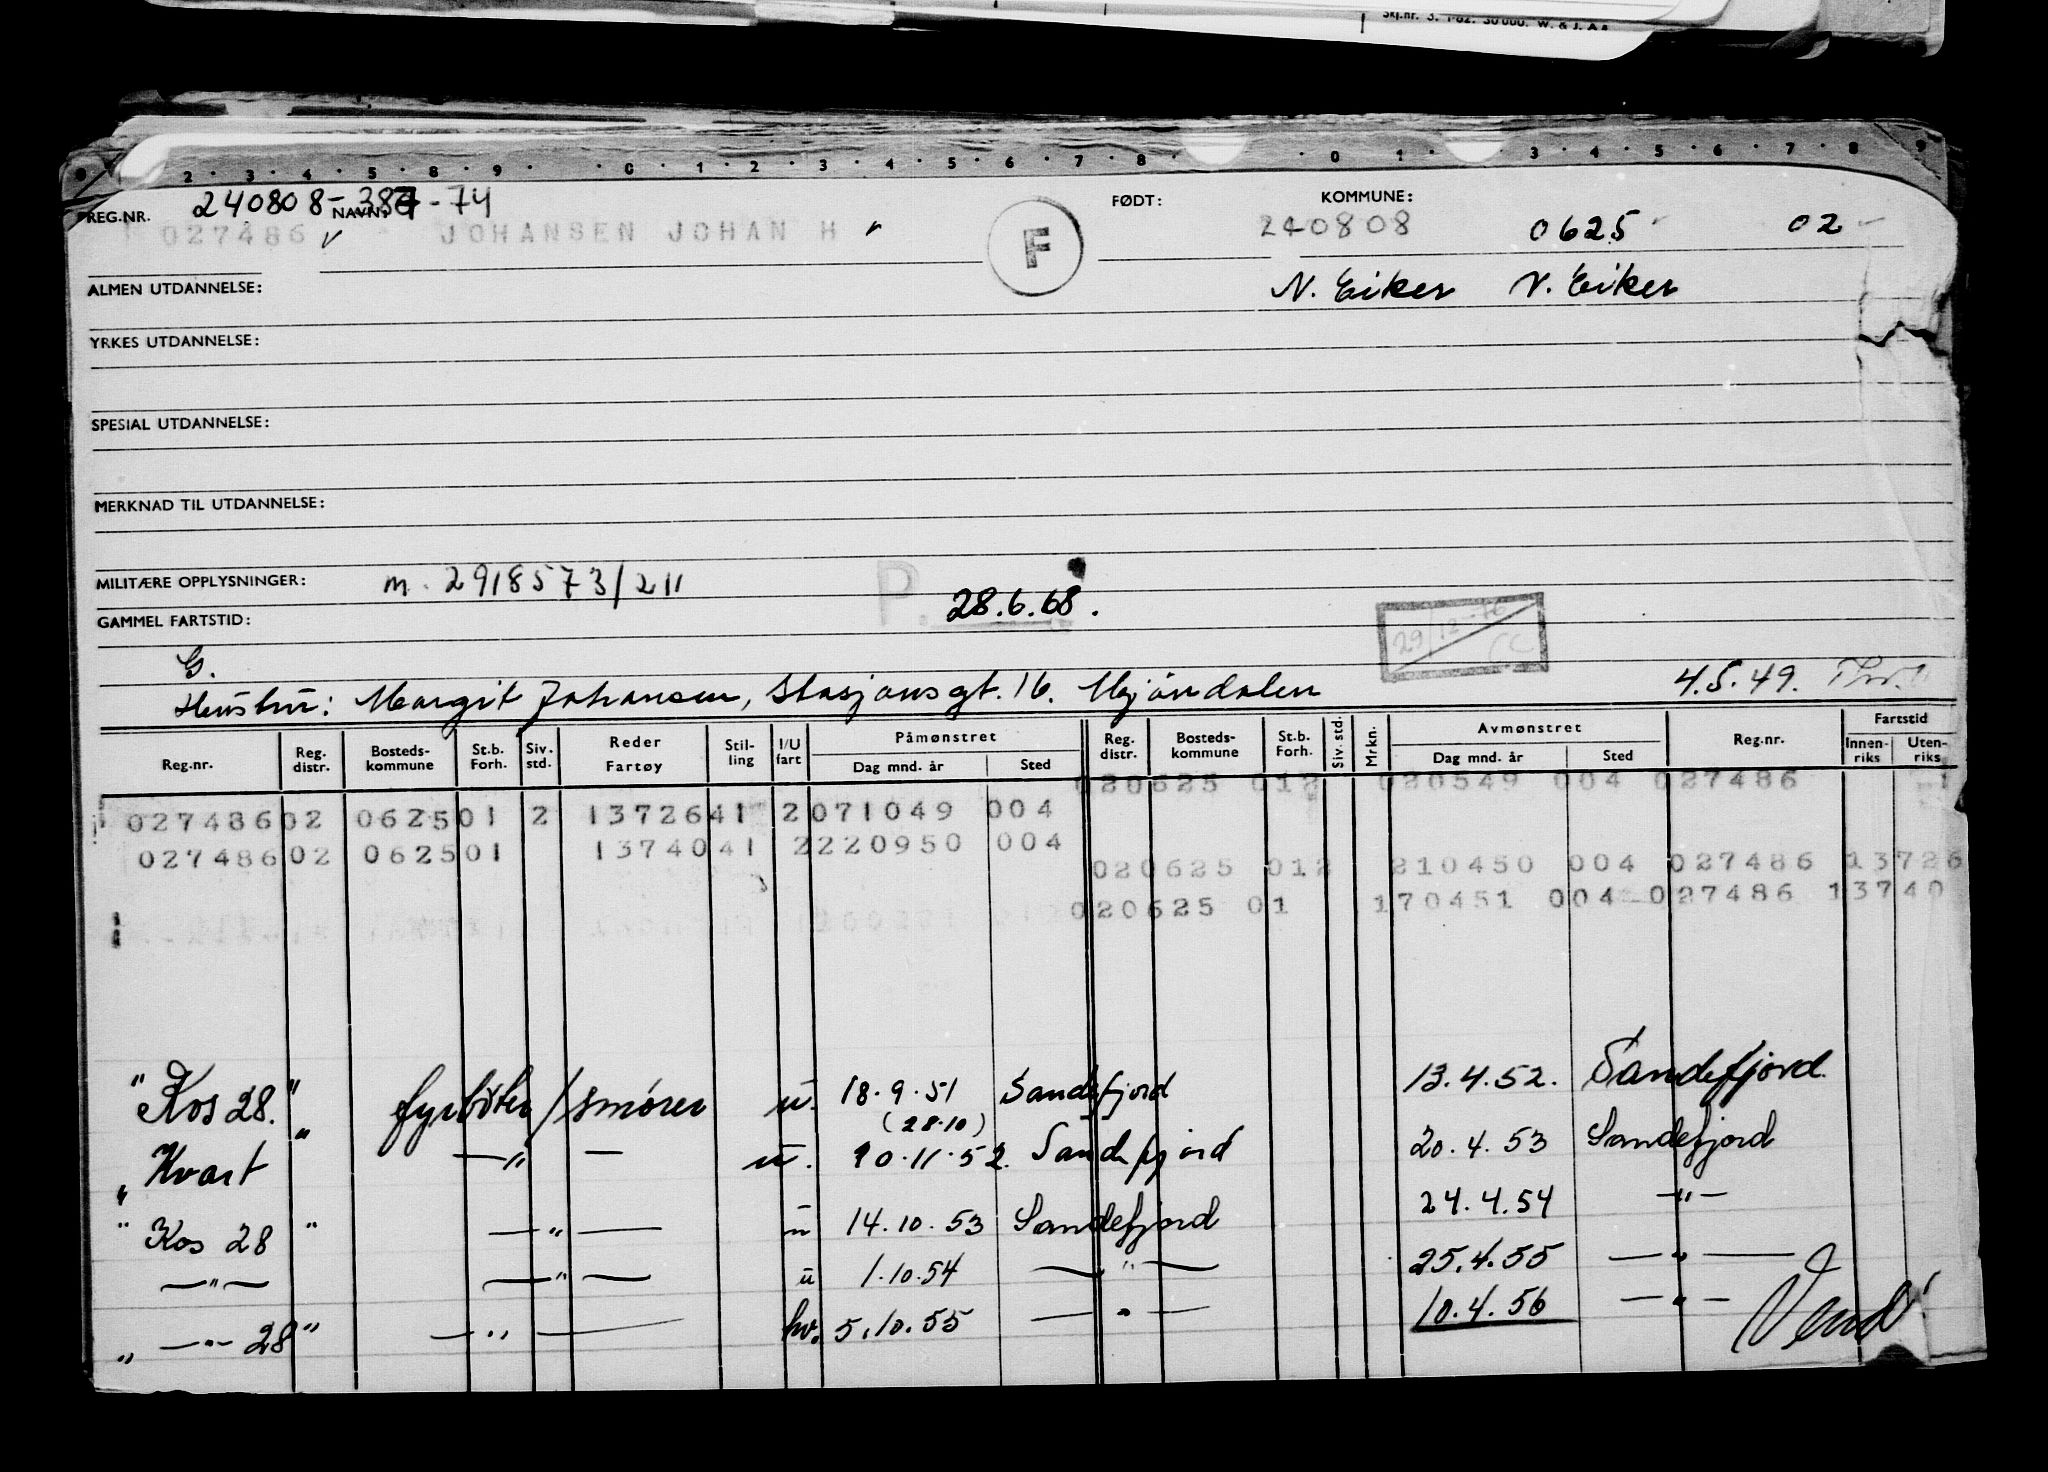 Skj.nr. 3. 1-62. 30 000. W. & J. A.s
2 3 4 5 8 9 0 1 2 3 4 5 6 7 8 0 1 3 4 5 6 7 8 9
240808- -74
REG.NR. NAVN: FØDT: KOMMUNE:
027486 JOHANSEN JOHAN H F 240808 0625 02
ALMEN UTDANNELSE: N. Eiker N. Eiker
YRKES UTDANNELSE:
SPESIAL UTDANNELSE:
MERKNAD TIL UTDANNELSE:
MILITÆRE OPPLYSNINGER: m. 2918573/211
P. 28.6.68.
GAMMEL FARTSTID: 29/12-76
G.
Hustru: Margit Johansen, Stasjonsgt. 16. Mjöndalen 4.5.49.
Reg.nr. Reg. distr. Bosteds-kommune St.b. Forh. Siv. std. Reder Fartøy Stil-ling I/U fart Påmønstret Dag mnd. år Sted Reg. distr. Bosteds-kommune St.b. Forh. Siv. std. Mrkn. Avmønstret Dag mnd. år Sted Reg.nr. Fartstid Innen-riks Uten-riks
020625 012 020549 004 027486
02748602 062501 2 1372641 2071049 004
02748602 062501 1374041 2220950 004
020625 012 210450 004 027486 13726
020625 01 170451 004 027486 13740
"Kos 28." fyrbøter/smører u. 18.9.51 Sandefjord 13.4.52. Sandefjord
(28.10)
„Kvart" —"— u. 10.11.52. Sandefjord 20.4.53 Sandefjord
"Kos 28" —"— u 14.10.53 Sandefjord 24.4.54 —"—
—"— —"— u 1.10.54 —"— 25.4.55 —"—
„—"— 28" —"— hv. 5.10.55 —"— 10.4.56 —"—
Vend!